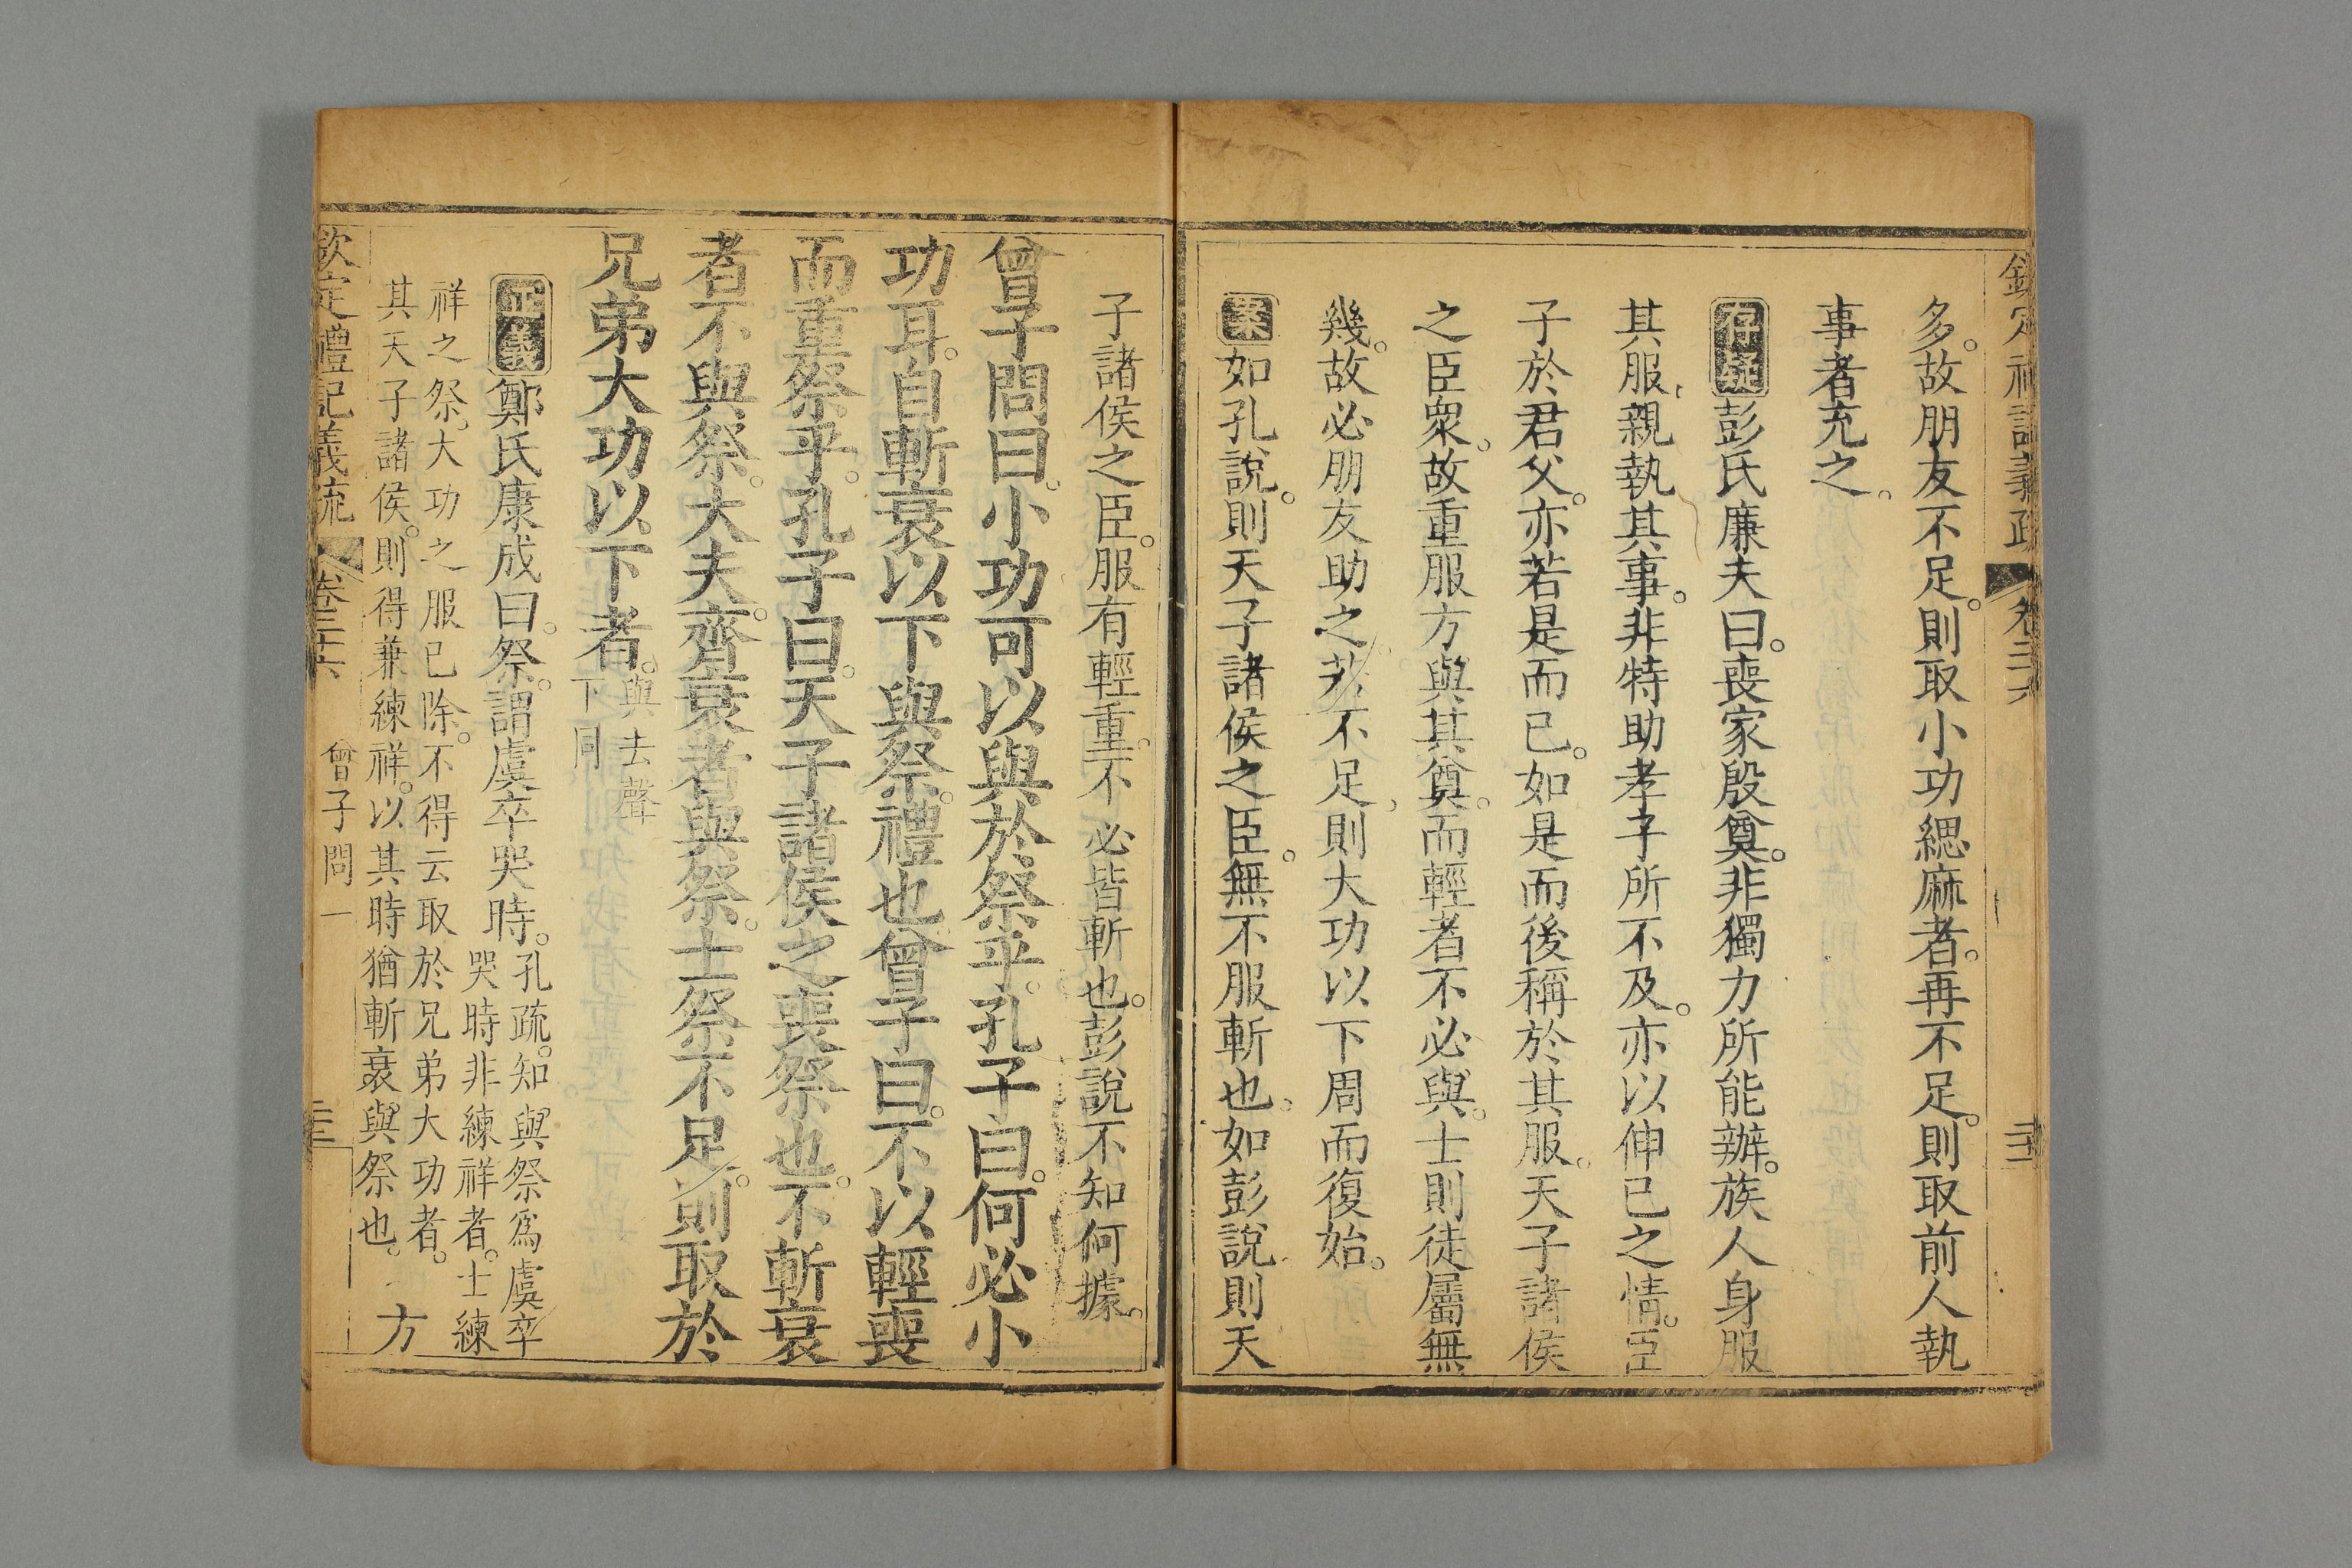 多。故朋友不足。則取小功緦麻者。再不足。則取前人執
事者充之。
存疑彭氏廉夫曰。喪家殷奠。非獨力所能辦。族人身服
其服、親執其事。非特助孝子所不及。亦以伸已之情。臣
子於君父。亦若是而已。如是而後稱於其服。天子諸侯
之臣衆。故重服方與其奠。而輕者不必與。士則徒屬無
幾。故必朋友助之。若不足、則大功以下周而復始。
案如孔說。則天子諸侯之臣。無不服斬也。如彭說則天
子諸侯之臣。服有輕重。不必皆斬也。彭說不知何據。
曾子問曰。小功可以與於祭乎。孔子曰。何必小
功耳。自斬衰以下與祭。禮也曾子曰。不以輕喪
而重祭乎。孔子曰。天子諸侯之喪祭也。不斬衰
者不與祭。大夫。齊衰者與祭。士祭不足。則取於
兄弟大功以下者。與去聲
下同
正義鄭氏康成曰。祭。謂虞卒哭時。孔疏。知與祭爲虞卒
哭時非練祥者。士練
祥之祭。大功之服已除。不得云取於兄弟大功者。
其天子諸侯。則得兼練祥。以其時猶斬衰與祭也。方
欽定禮記義疏 卷三十六 曾子問一